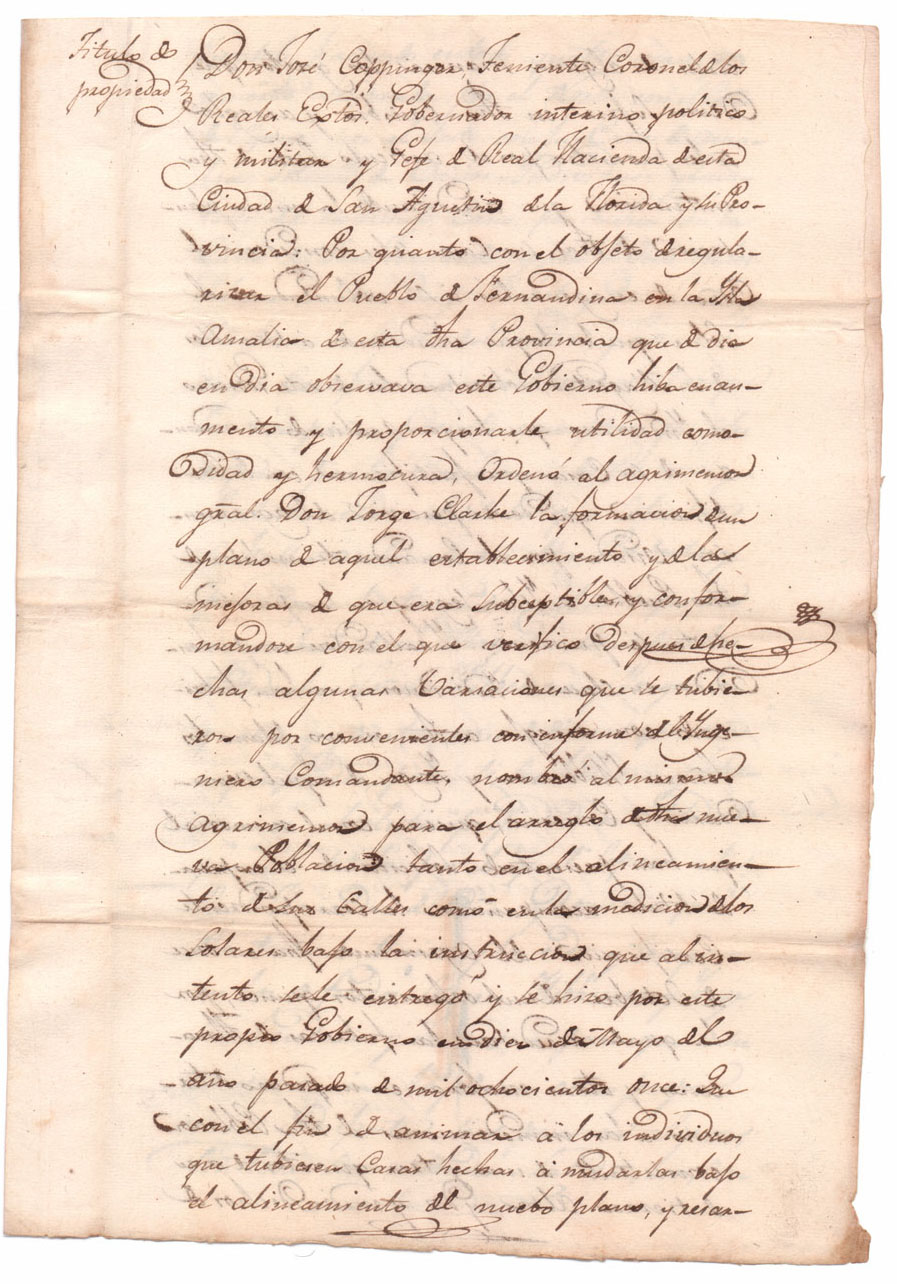 Titulo de
propiedad
Don José Coppinger, Teniente Coronel de los
Reales Extos. Gobernador interino politico
y militar y Gefe de Real Hacienda de esta
Ciudad de San Agustin de la Florida y su Pro-
vincia: Por quanto con el objeto de regula-
rizar el Pueblo de Fernandina en la Ysla
Amalia de esta dha Provincia que de dia
en dia observava este Gobierno hiba en au-
mento y proporcionarle utilidad como-
didad y hermocura, Ordenó al agrimensor
gral. Don Jorge Clarke la formacion de un
plano de aquel establecimiento y de las
mejoras de que era subceptible, y confor-
mandose con el que verifico despues de he-
chas algunas Variaciones que se tubie-
ron por convenientes con informe del Yng-
niero Comandante, nombró al mismo
Agrimensor para el arreglo de dha nue-
va Poblacion tanto en el alineamien-
to de sus Calles como en la medicion de los
Solares bajo la instruccion que al in-
tento se le entregó y se hizo por este
propio Gobierno en diez de Mayo del
año pasado de mil ochocientos once: Que
con el fin de animar á los individuos
que tubiesen Casas hechas á mudarlas bajo
el alineamiento del nuebo plano, y resar-